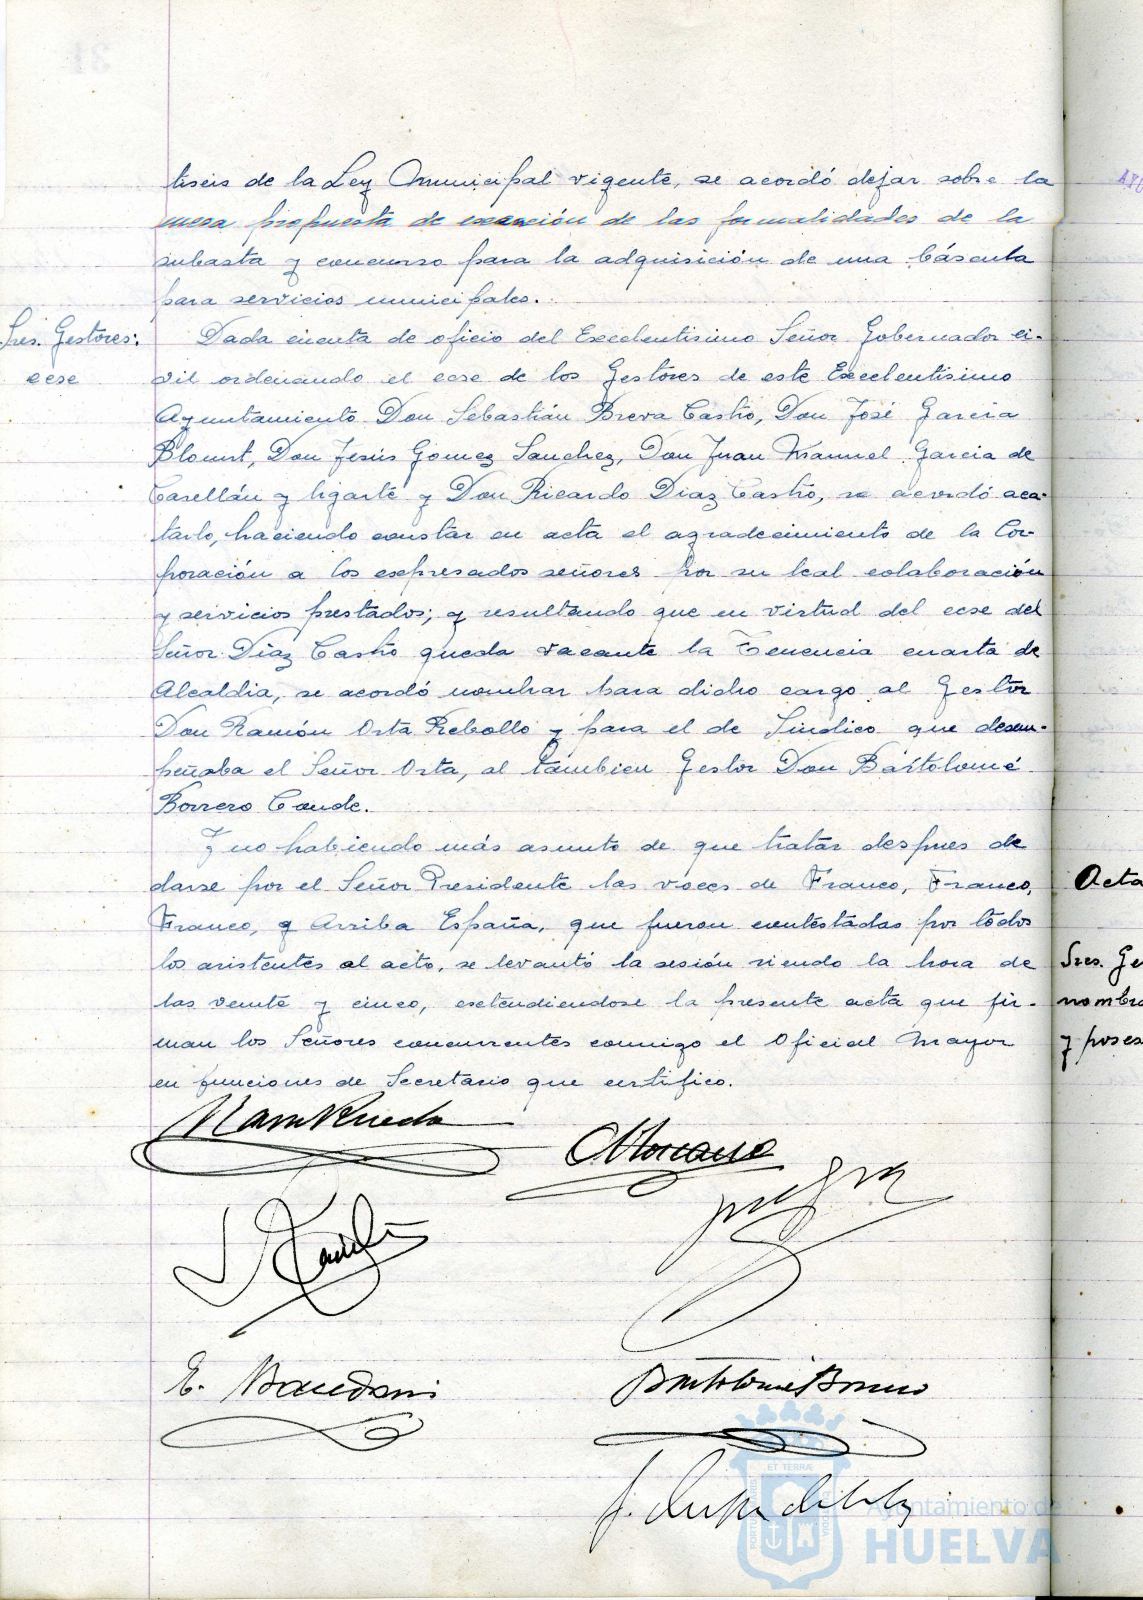 tiseis de la Ley Municipal vigente, se acordó dejar sobre la
mesa propuesta de exención de las formalidades de la
subasta y concurso para la adquisición de una báscula
para servicios municipales.
Sres. Gestores:
cese
Dada cuenta de oficio del Excelentisimo Señor Gobernador ci-
vil ordenando el cese de los Gestores de este Excelentisimo
Ayuntamiento Don Sebastián Breva Castro, Don José Garcia
Blount, Don Jesús Gomez Sanchez, Don Juan Manuel Garcia de
Castellán y Ugarte y Don Ricardo Diaz Castro, se acordó aca-
tarlo, haciendo constar en acta el agradecimiento de la Cor-
poración a los expresados señores por su leal colaboración
y servicios prestados; y resultando que en virtud del cese del
Señor Díaz Castro queda vacante la Tenencia cuarta de
Alcaldia, se acordó nombrar para dicho cargo al Gestor
Don Ramón Orta Rebollo y para el de Sindico que desem-
peñaba el Señor Orta, al tambien Gestor Don Bártolomé
Borrero Conde.
Y no habiendo más asunto de que tratar despues de
darse por el Señor Presidente las voces de Franco, Franco,
Franco, y Arriba España, que fueron contestadas por todos
los asistentes al acto, se levantó la sesión siendo la hora de
las veinte y cinco, extendiendose la presente acta que fir-
man los Señores concurrentes conmigo el Oficial Mayor
en funciones de Secretario que certifico.
E.
Bartolomé Borrero
Acta
Sres. Ge
nombra
y poses
ET TERRÆ
Ayuntamiento de
HUELVA